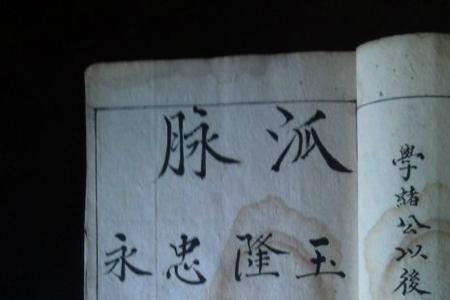 學緒公以後
泒脉
玉隆忠永